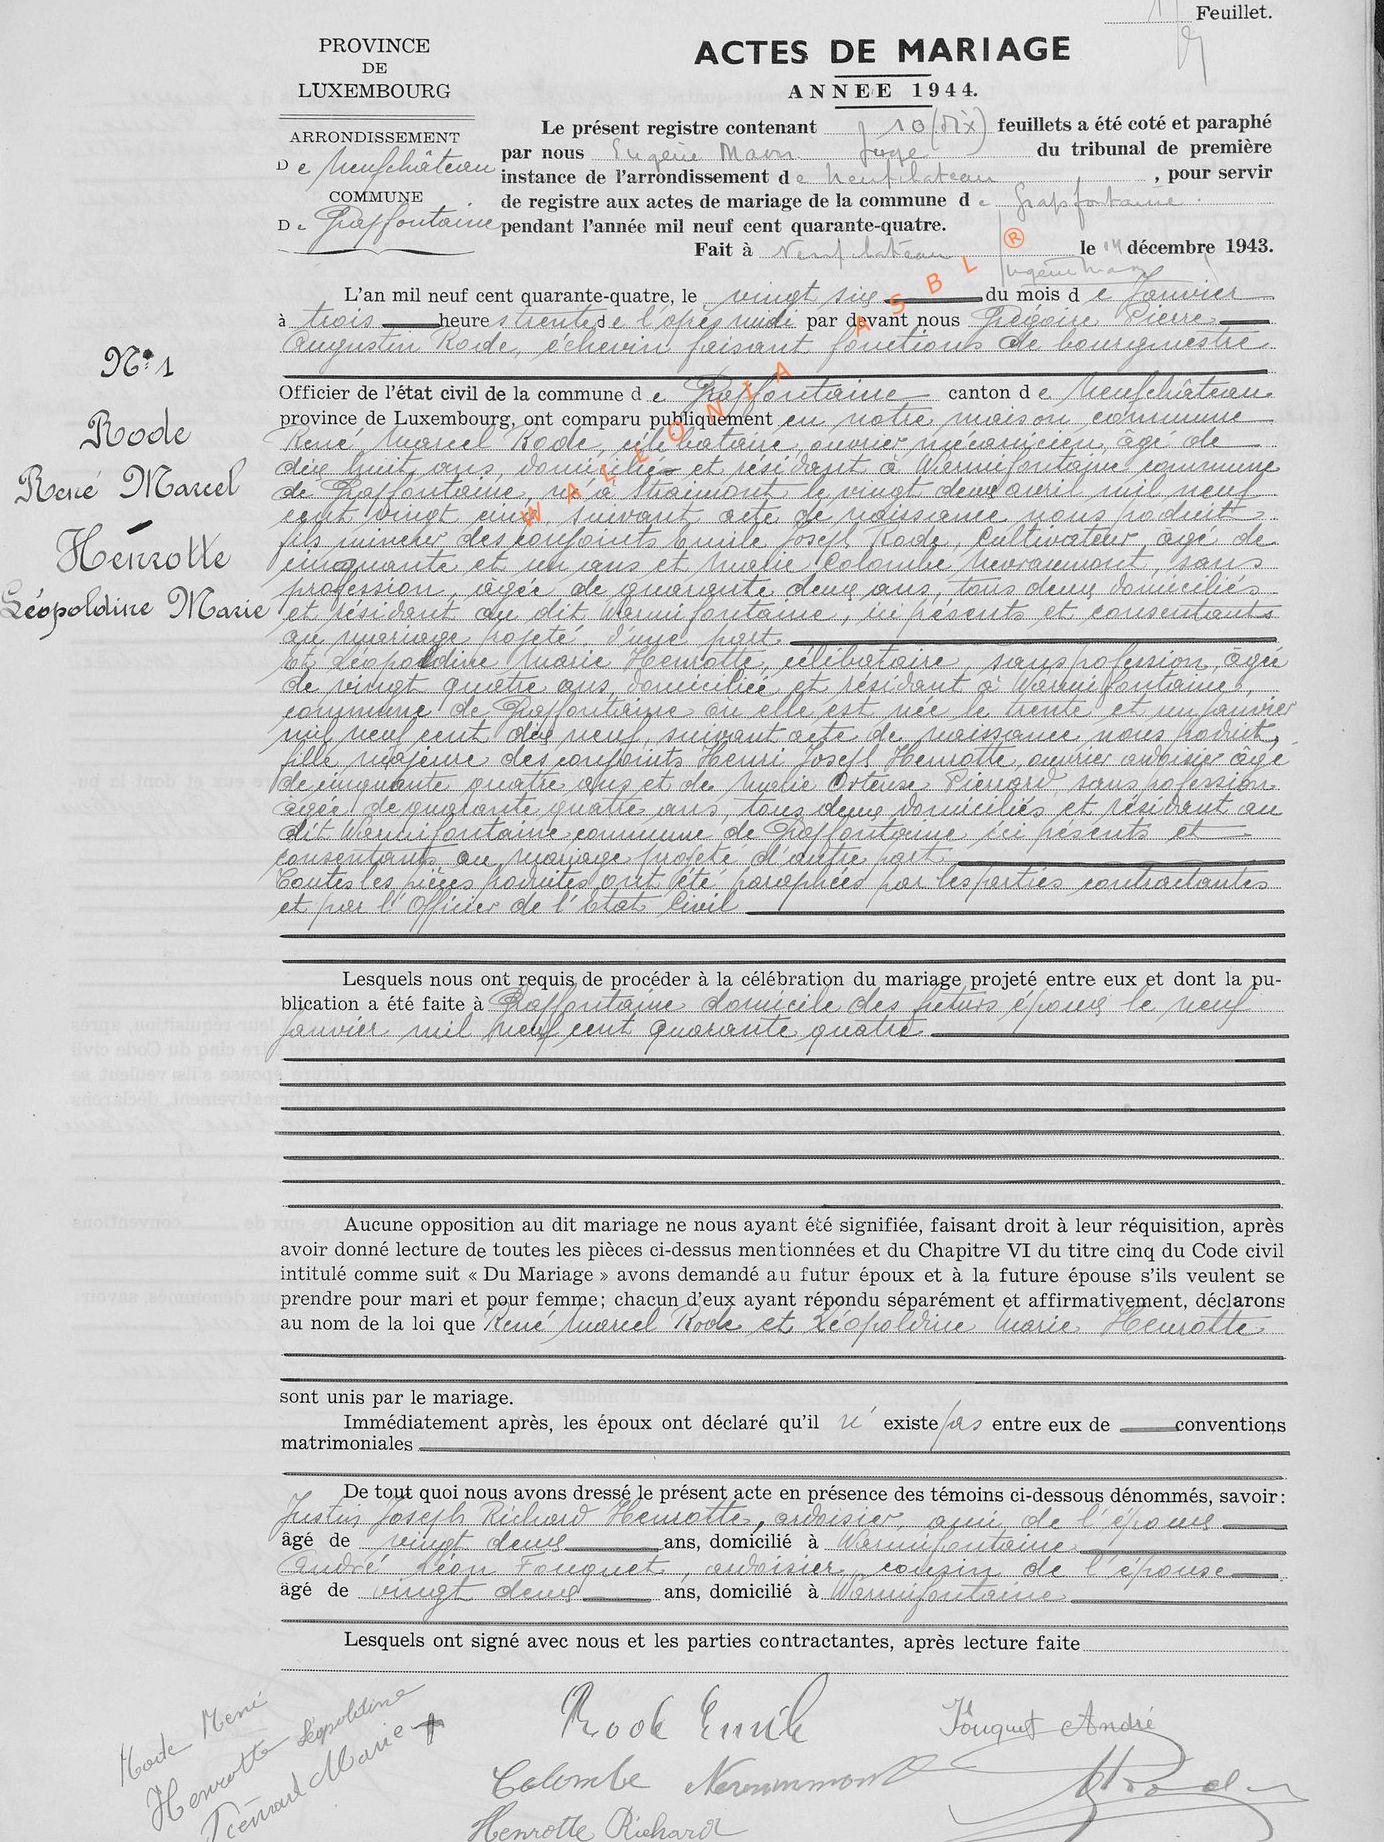 Feuillet.
PROVINCE
DE
LUXEMBOURG
ARRONDISSEMENT
De Neufchâteau
COMMUNE
De Graffontaine
ACTES DE MARIAGE
ANNEE 1944.
Le présent registre contenant 10 (dix) feuillets a été coté et paraphé
par nous Eugène Maon juge du tribunal de première
instance de l'arrondissement de Neufchateau, pour servir
de registre aux actes de mariage de la commune de Grapfontaine
pendant l'année mil neuf cent quarante-quatre.
Fait à Neufchateau le 14 décembre 1943.
WALLONIA ASBL ®
L'an mil neuf cent quarante-quatre, le vingt six du mois de Janvier
à trois heures trente de l'après midi par devant nous Grégoire Pierre
Augustin Rode, échevin faisant fonctions de bourgmestre
Officier de l'état civil de la commune de Graffontaine canton de Neufchâteau
province de Luxembourg, ont comparu publiquement en notre maison commune
René Marcel Rode, célibataire, ouvrier mécanicien, âgé de
dix huit ans, domicilié et résidant à Warmifontaine commune
de Graffontaine, né à Straimont le vingt deux avril mil neuf
cent vingt cinq, suivant acte de naissance nous produit
fils mineur des conjoints Emile Joseph Rode, cultivateur, âgé de
cinquante et un ans et Marie Colombe Nevraumont, sans
profession, âgée de quarante deux ans, tous deux domiciliés
et résidant au dit Warmifontaine, ici présents et consentants
au mariage projeté, d'une part
Et Léopoldine Marie Henrotte, célibataire, sans profession, âgée
de vingt quatre ans, domiciliée et résidant à Warmifontaine,
commune de Graffontaine où elle est née le trente et un janvier
mil neuf cent dix neuf, suivant acte de naissance nous produit,
fille majeure des conjoints Henri Joseph Henrotte, ouvrier ardoisier âgé
de cinquante quatre ans et de Marie Ortense Pierrard sans profession
âgée de quarante quatre ans, tous deux domiciliés et résidant au
dit Warmifontaine commune de Graffontaine ici présents et
consentants au mariage projeté d'autre part
Toutes les pièces produites ont été paraphées par les parties contractantes
et par l'Officier de l'Etat Civil
N° 1
Rode
René Marcel
-
Henrotte
Léopoldine Marie
Lesquels nous ont requis de procéder à la célébration du mariage projeté entre eux et dont la pu-
blication a été faite à Graffontaine domicile des futurs époux le neuf
janvier mil neuf cent quarante quatre
Aucune opposition au dit mariage ne nous ayant été signifiée, faisant droit à leur réquisition, après
avoir donné lecture de toutes les pièces ci-dessus mentionnées et du Chapitre VI du titre cinq du Code civil
intitulé comme suit « Du Mariage » avons demandé au futur époux et à la future épouse s'ils veulent se
prendre pour mari et pour femme; chacun d'eux ayant répondu séparément et affirmativement, déclarons
au nom de la loi que René Marcel Rode et Léopoldine Marie Henrotte
sont unis par le mariage.
Immédiatement après, les époux ont déclaré qu'il n'existe pas entre eux de conventions
matrimoniales
De tout quoi nous avons dressé le présent acte en présence des témoins ci-dessous dénommés, savoir:
Justin Joseph Richard Henrotte, ardoisier, ami de l'époux
âgé de vingt deux ans, domicilié à Warmifontaine
André Léon Fouquet, ardoisier, cousin de l'épouse
âgé de vingt deux ans, domicilié à Warmifontaine
Lesquels ont signé avec nous et les parties contractantes, après lecture faite
Rode René
Henrotte Léopoldine
Pierrard Marie
Rode Emile
Colombe Nevraumont
Henrotte Richard
Fouquet André